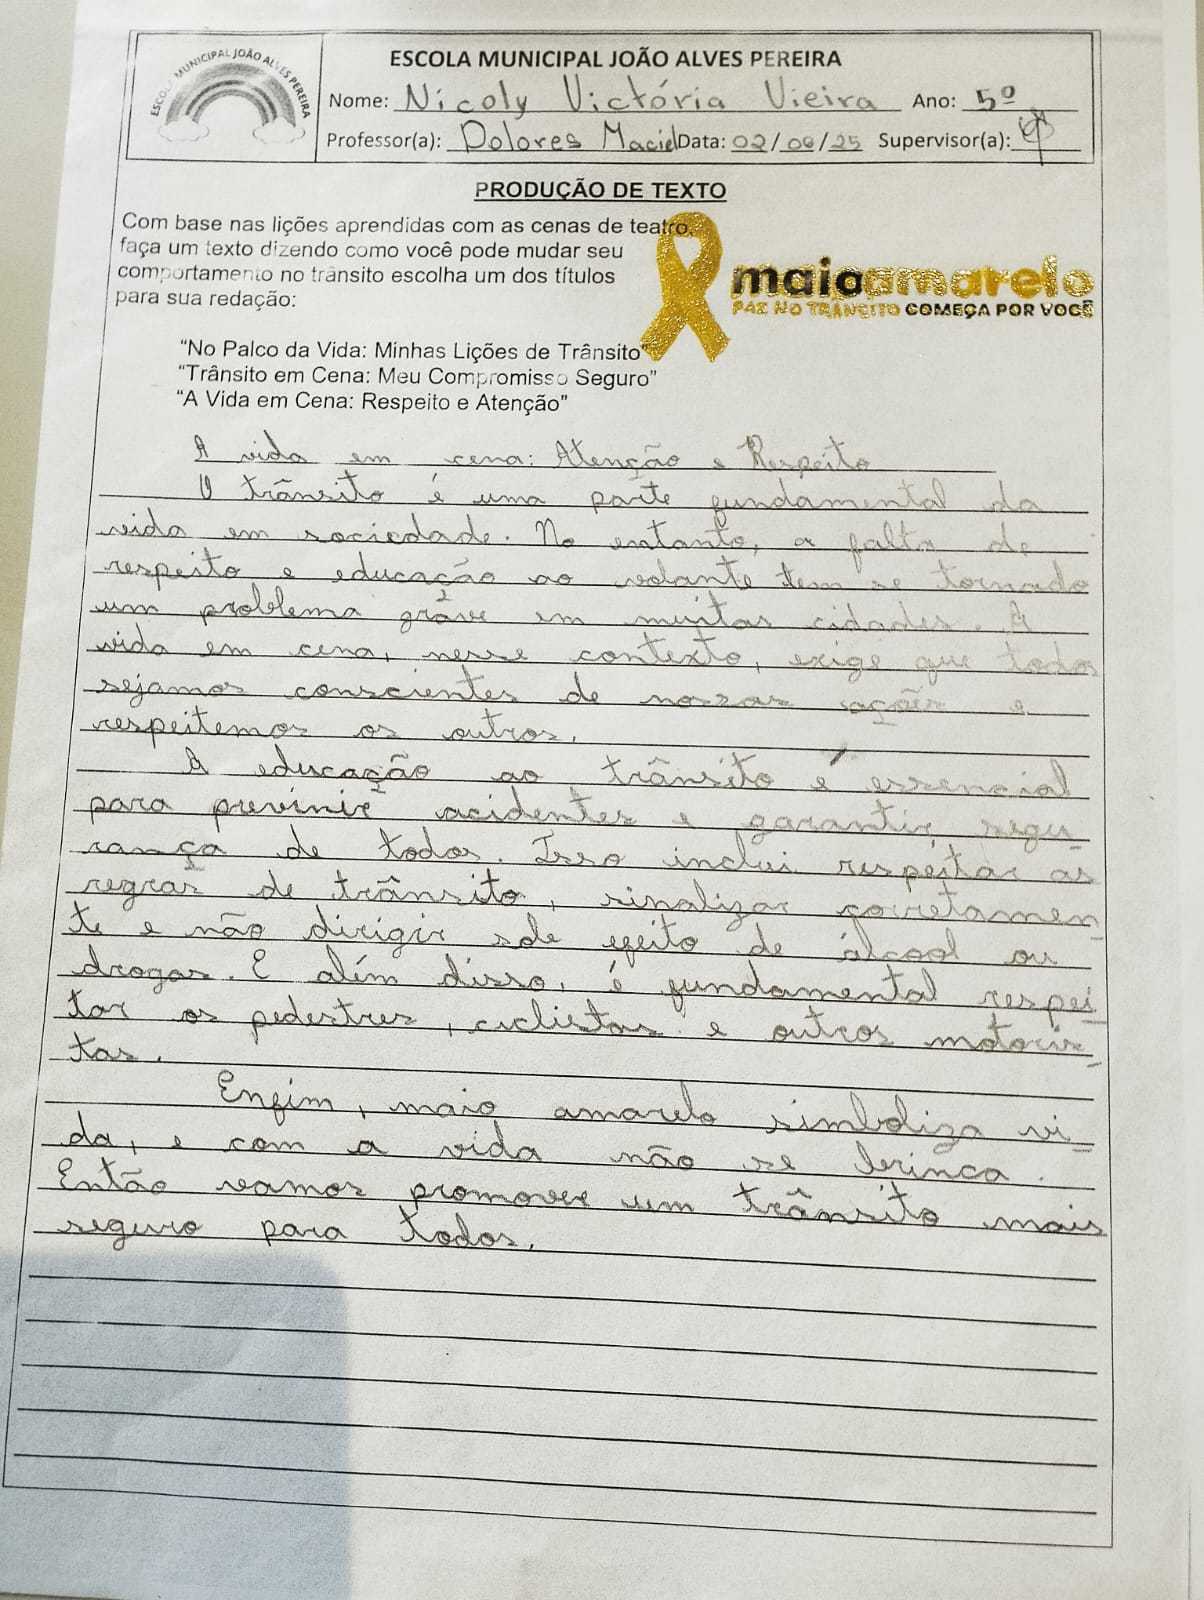 ESCOLA MUNICIPAL JOÃO ALVES PEREIRA
ESCOLA MUNICIPAL JOÃO ALVES PEREIRA
Nome: Nicoly Victória Vieira Ano: 5º
Professor(a): Dolores Maciel Data: 02/06/25 Supervisor(a):
PRODUÇÃO DE TEXTO
Com base nas lições aprendidas com as cenas de teatro,
faça um texto dizendo como você pode mudar seu
comportamento no trânsito escolha um dos títulos
para sua redação:
maioamarelo
PAZ NO TRÂNSITO COMEÇA POR VOCÊ
“No Palco da Vida: Minhas Lições de Trânsito”
“Trânsito em Cena: Meu Compromisso Seguro”
“A Vida em Cena: Respeito e Atenção”
A vida em cena: Atenção e Respeito
O trânsito é uma parte fundamental da
vida em sociedade. No entanto, a falta de
respeito e educação ao volante tem se tornado
um problema grave em muitas cidades. A
vida em cena, nesse contexto, exige que todos
sejamos conscientes de nossas ações e
respeitemos os outros.
A educação ao trânsito é essencial
para previnir acidentes e garantir segu-
rança de todos. Isso inclui respeitar as
regras de trânsito, sinalizar corretamen-
te e não dirigir sde efeito de álcool ou
drogas. E além disso, é fundamental respei-
tar os pedestres, ciclistas e outros motoris-
tas.
Enfim, maio amarelo simboliza vi-
da, e com a vida não se brinca.
Então vamos promover um trânsito mais
seguro para todos.